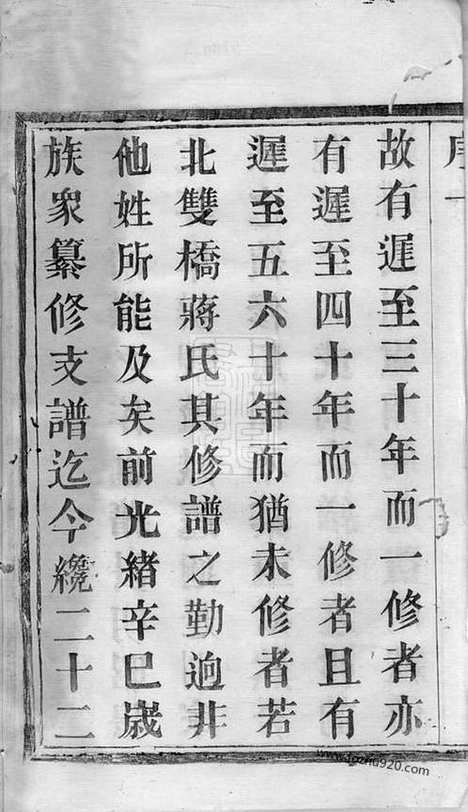 故有遲至三十年而一修者亦
有遲至四十年而一修者且有
遲至五六十年而猶未修者若
北雙橋蔣氏其修譜之勤逈非
他姓所能及矣前光緒辛巳歲
族衆纂修支譜迄今纔二十二